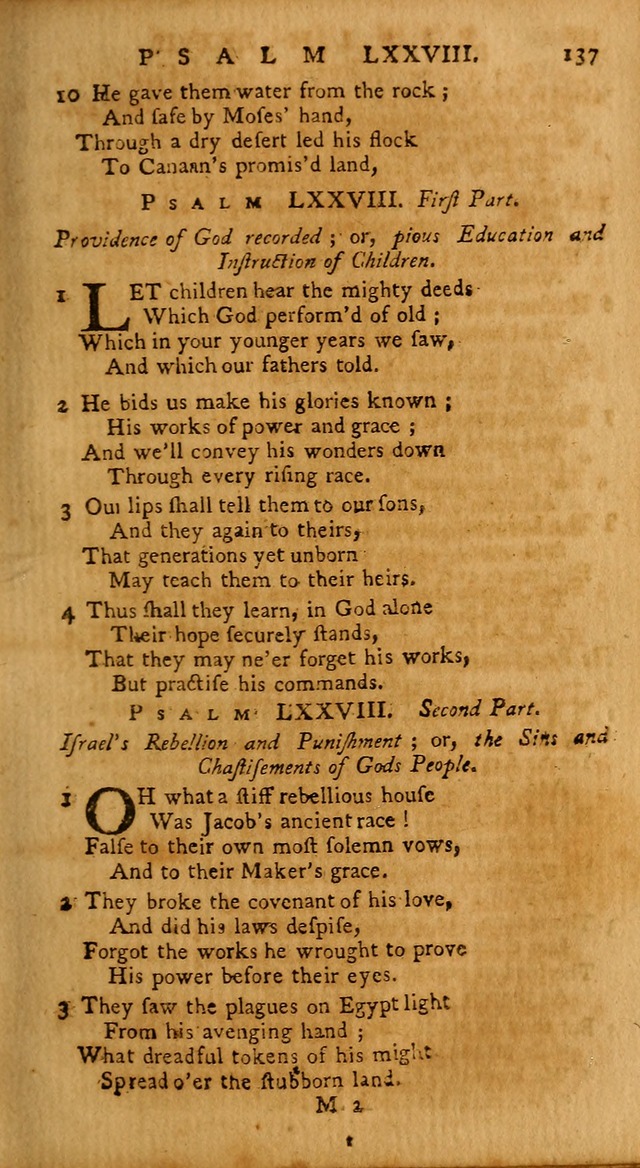 PSALM LXXVIII. 137
10 He gave them water from the rock ;
And ſafe by Moſes' hand,
Through a dry deſert led his flock
To Canaan's promis'd land,
PSALM LXXVIII. Firſt Part.
Providence of God recorded ; or, pious Education and
Inſtruction of Children.
1 LET children hear the mighty deeds
Which God perform'd of old ;
Which in your younger years we ſaw,
And which our fathers told.
2 He bids us make his glories known ;
His works of power and grace ;
And we'll convey his wonders down
Through every riſing race.
3 Our lips ſhall tell them to our ſons,
And they again to theirs,
That generations yet unborn
May teach them to their heirs.
4 Thus ſhall they learn, in God alone
Their hope ſecurely ſtands,
That they may ne'er forget his works,
But practiſe his commands.
PSALM LXXVIII. Second Part.
Iſrael's Rebellion and Puniſhment ; or, the Sins and
Chaſtiſements of Gods People.
1 OH what a ſtiff rebellious houſe
Was Jacob's ancient race !
Falſe to their own moſt ſolemn vows,
And to their Maker's grace.
2 They broke the covenant of his love,
And did his laws deſpiſe,
Forgot the works he wrought to prove
His power before their eyes.
3 They ſaw the plagues on Egypt light
From his avenging hand ;
What dreadful tokens of his might
Spread o'er the ſtubborn land.
M 2